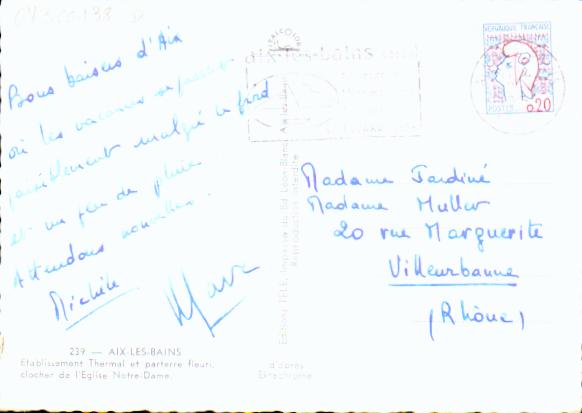 Bons baisers d'Aix
où les vacances se passent
paisiblement malgré le froid
et un peu de pluie.
Attendons nouvelles.
Michèle
239 — AIX-LES-BAINS
Etablissement Thermal et parterre fleuri,
clocher de l'Eglise Notre-Dame.
aix-les-bains
Reproduction interdite
d'après
Ektachrome
REPUBLIQUE FRANÇAISE
POSTES 0,20
Madame Jardiné
Madame Muller
20 rue Marguerite
Villeurbanne
(Rhône)